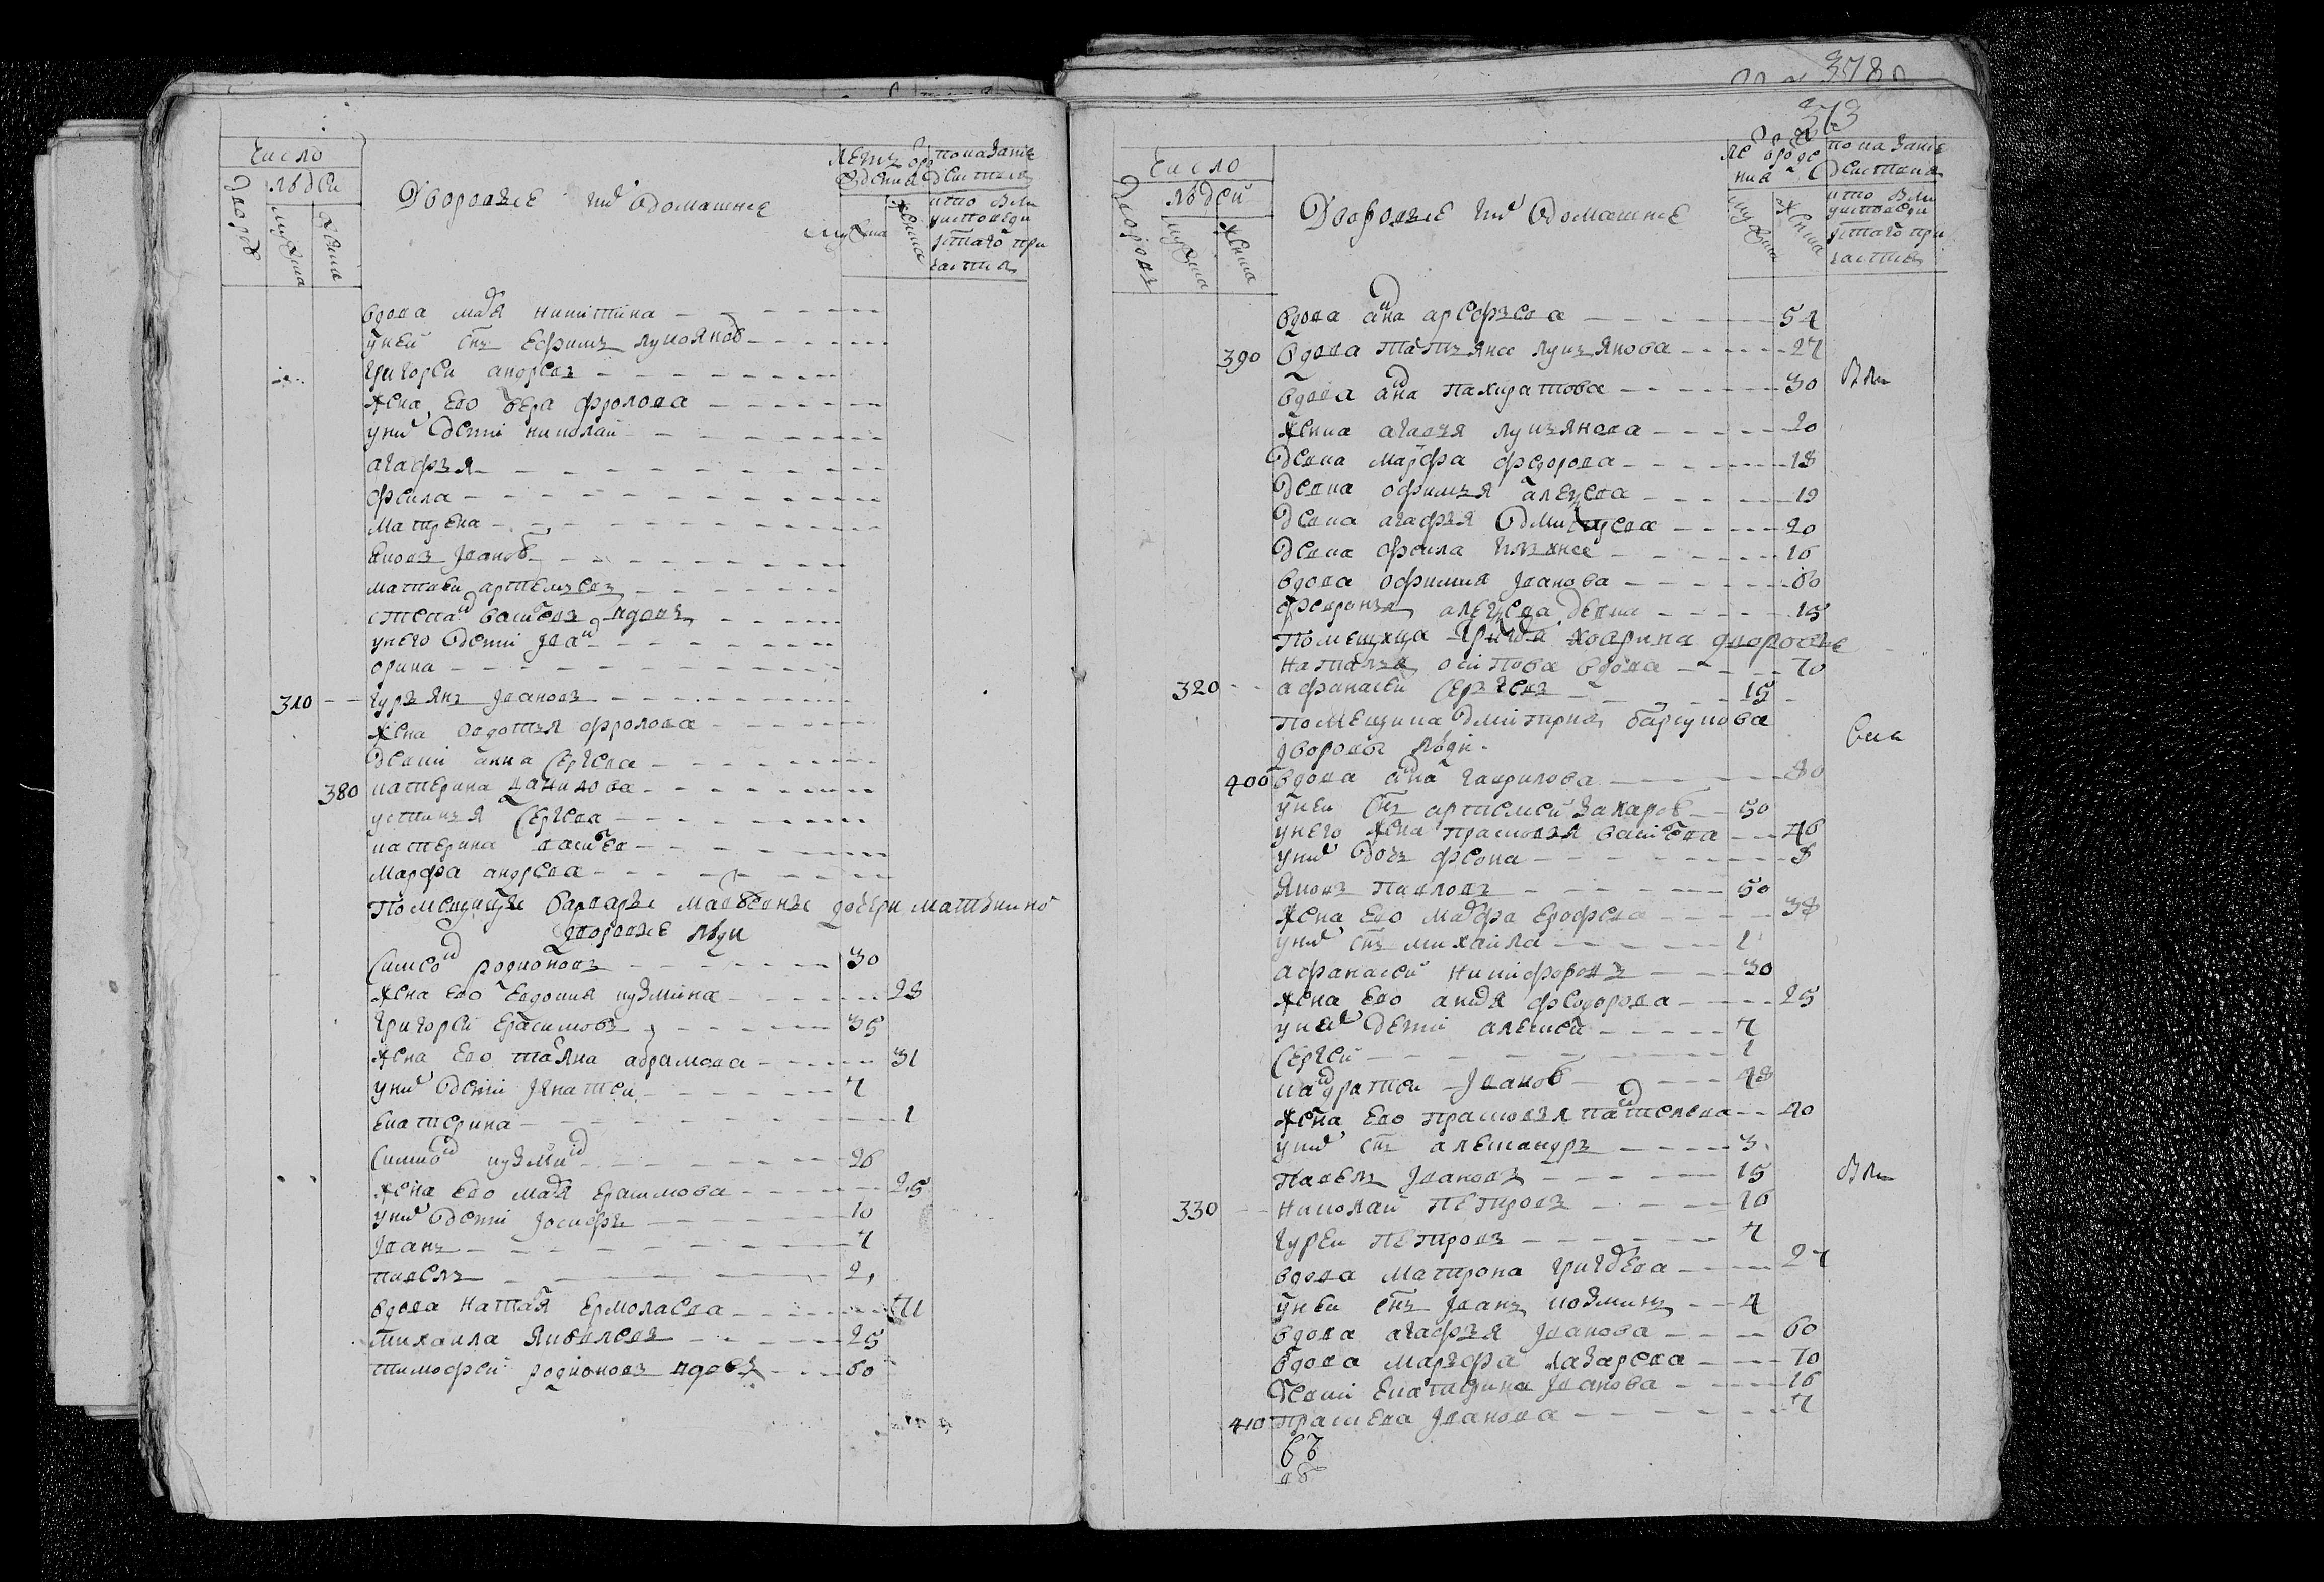 число
дворов
людей
мужеска
женска
Дворовые и их домашние
лет от рождения
мужеска
женска
показание действа
кто был у исповеди и святаго причастия
вдова мария никитина
у неи сын ефимъ лукоянов
григореи андреевъ
жена ево вера фролова
у них дети николай
агафья
фекла
матрена
яковъ иванов
матвеи артемьевъ
степан васильевъ вдовъ
у него дети иван
орина
310 гурьянъ ивановъ
жена авдотья фролова
девки анна сергеева
380 катерина данилова
устинья сергеева
катерина васильева
марфа андреева
помещицы варвары
дворовые люди
симеон родионовъ 30
жена ево евдокия кузмина 28
григореи ерасимовъ 35
жена ево татьяна абрамова 31
у них дети игнатеи 7
екатерина 1
симион кузмин 26
жена ево марья ерасимова 25
у них дети иосифъ 10
иванъ 7
павелъ 2
вдова наталья ермолаева
михаила яковлевъ 25
тимофеи родионовъ вдовъ 60
378
373
число
дворовъ
людей
мужеска
женска
Дворовые и их домашние
лет от рождения
мужеска
женска
показание действа
кто был у исповеди и святаго причастия
вдова анна арефьева 54
390 вдова татьяна лукьянова 27
вдова анна панкратова 30
женка агафья лукьянова 20
девка марфа федорова 18
девка офимья алексеева 19
девка агафья дмитреева 20
девка фекла 16
вдова офимия иванова 60
февронья алексеева девка 15
помещика дворовые
наталья осипова вдова 70
320 афанасеи сергеевъ 15
помещика дмитрия баркунова
дворовые люди
400 вдова анна гаврилова 80
у неи сын артемеи захаров 50
у него жена прасковья васильева 46
у них дочь фекла 8
яковъ павловъ 50
жена ево марфа ерофеева 38
у них сын михаила 1
афанасеи никифоровъ 30
жена ево авдотья федорова 25
у них дети алексеи 7
сергеи 1
кандратеи иванов 48
жена ево прасковья пантелеева 40
у них сын александръ 3
павелъ ивановъ 15
330 николаи петровъ 10
гуреи петровъ 7
вдова матрона григорьева 27
у неи сын иванъ козминъ 4
вдова агафья иванова 60
вдова марфа лазарева 70
девки екатерина иванова 16
410 праскева иванова 7